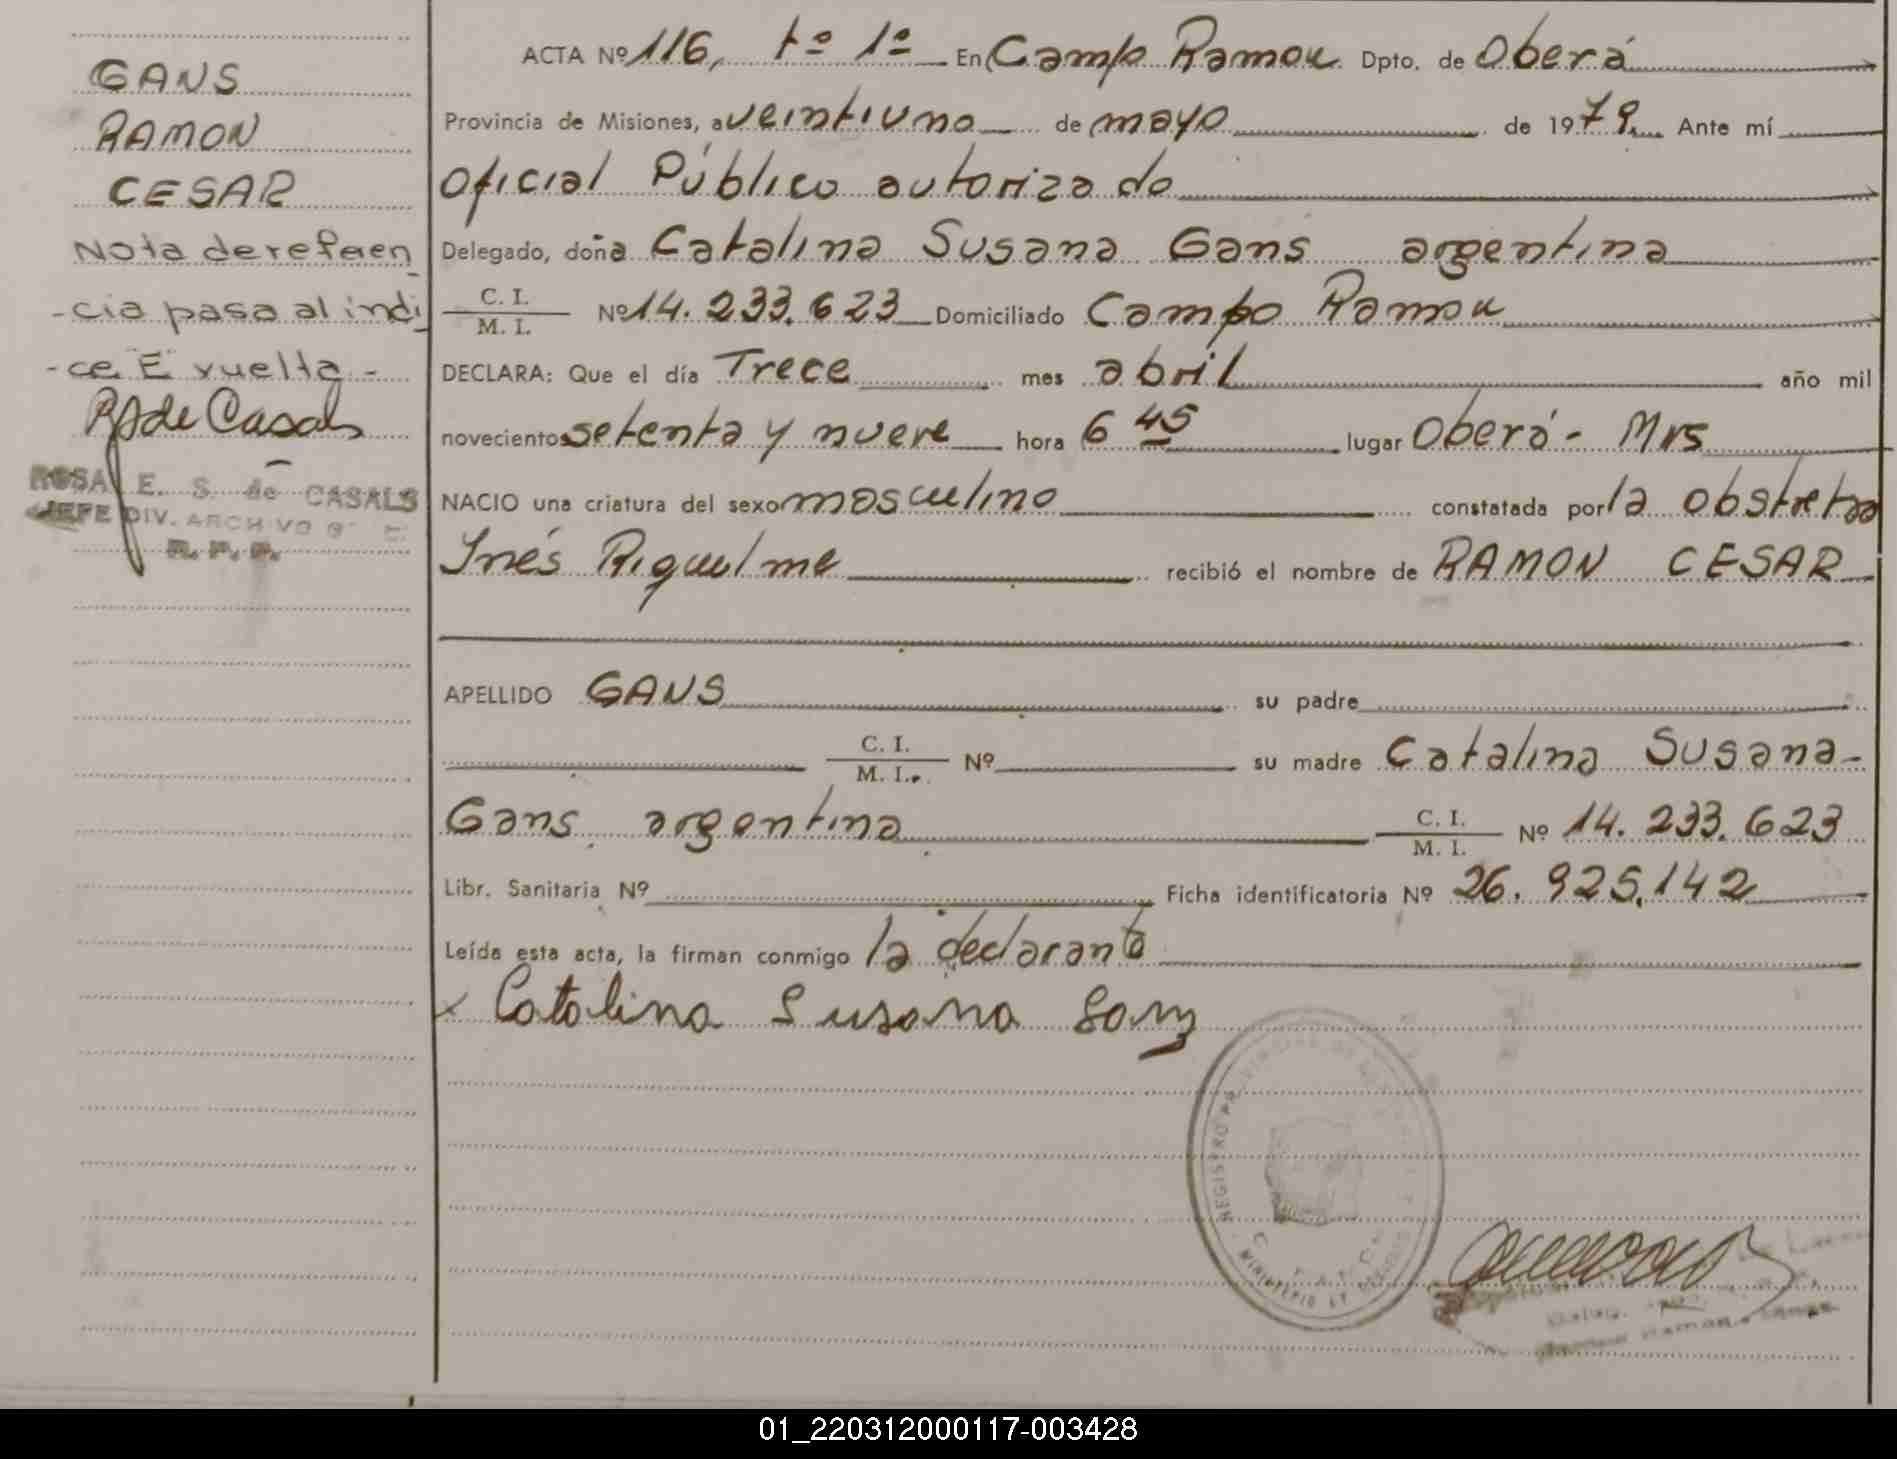 GANS
RAMON
CESAR
Nota de referen
-cia pasa al indi
-ce E vuelta -
RS de Casals
ROSA E. S. de CASALS
JEFE DIV. ARCHIVO
R. P. P.
ACTA Nº 116, tº 1º En Campo Ramon Dpto. de Oberá
Provincia de Misiones, a veintiuno de mayo de 1979. Ante mí
Oficial Público autorizado
Delegado, doña Catalina Susana Gans argentina
C. I.
M. I. Nº 14.233.623 Domiciliado Campo Ramon
DECLARA: Que el día Trece mes abril año mil
novecientos setenta y nueve hora 6 45 lugar Oberá - Mns
NACIO una criatura del sexo masculino constatada por la obstetra
Inés Riquelme recibió el nombre de RAMON CESAR
APELLIDO GANS su padre
C. I.
M. I. Nº su madre Catalina Susana-
Gans argentina C. I.
M. I. Nº 14.233.623
Libr. Sanitaria Nº Ficha identificatoria Nº 26.925.142
Leída esta acta, la firman conmigo la declarante
x Catalina Susana Gans
REGISTRO PROVINCIAL DE LAS
MINISTERIO DE GOBIERNO
01_220312000117-003428